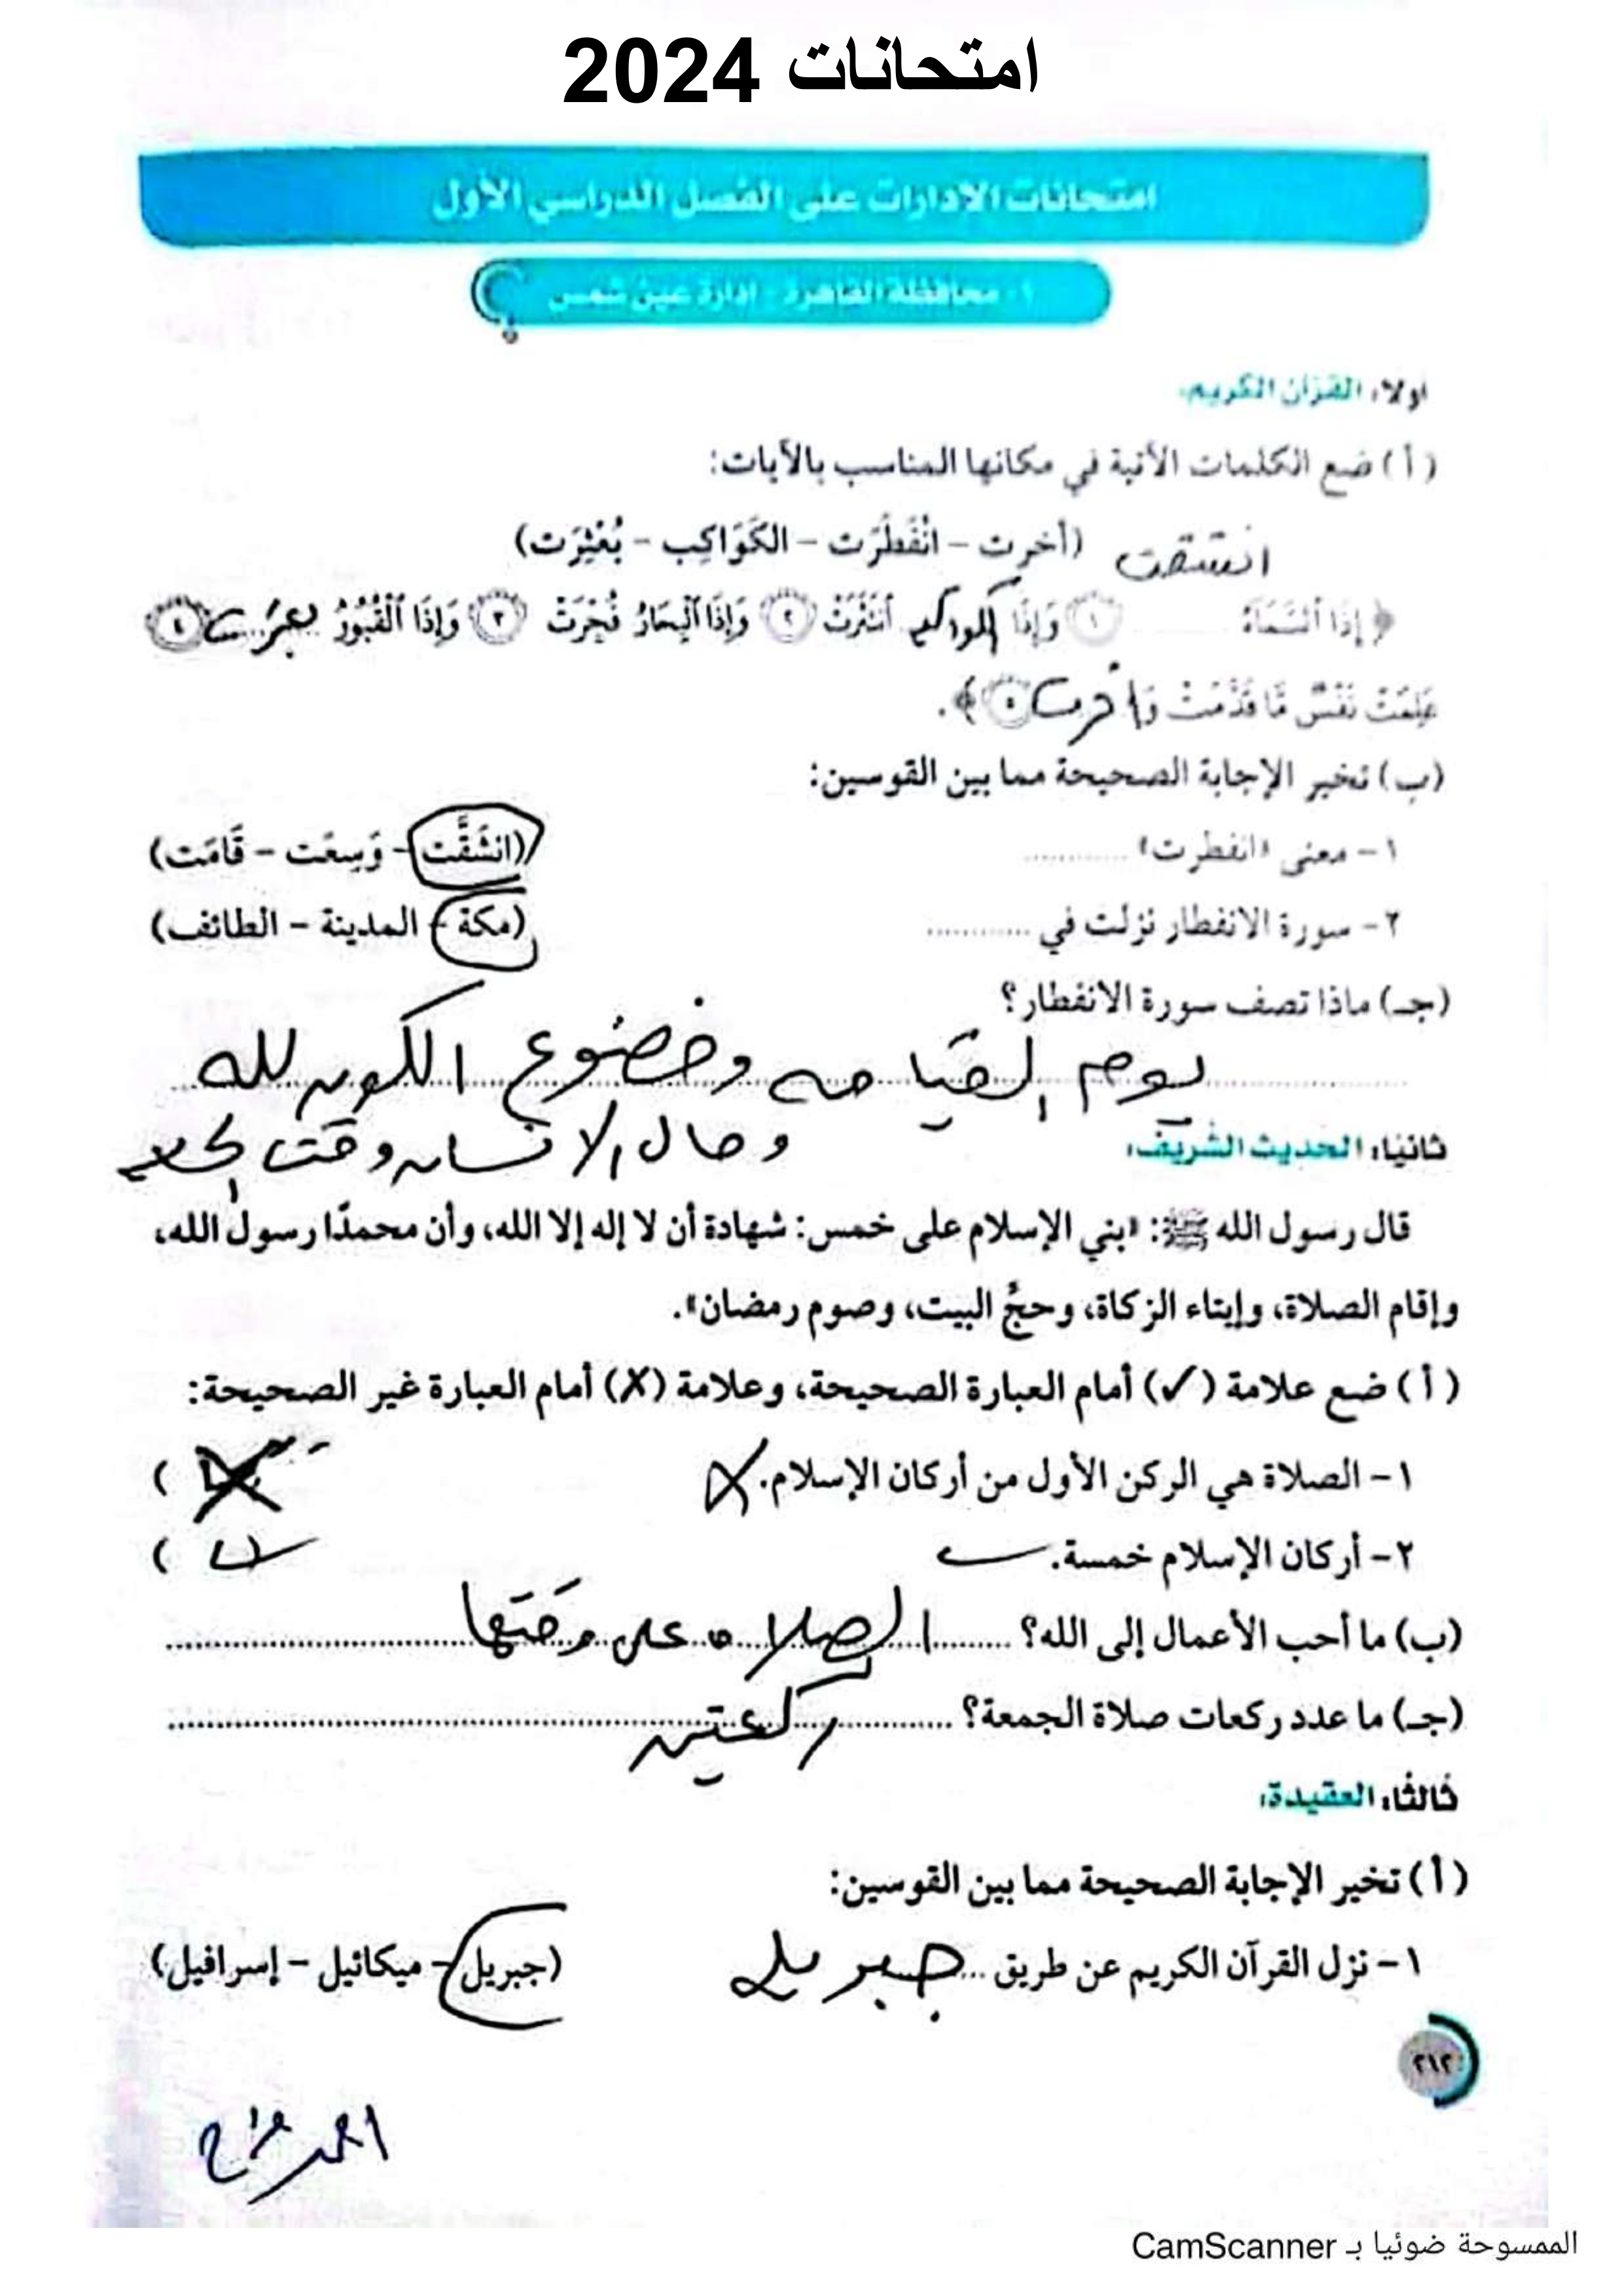 امتحانات 2024
امتحانات الإدارات على الفصل الدراسي الأول
١- محافظة القاهرة - إدارة عين شمس
أولًا: القرآن الكريم:
(أ) ضع الكلمات الآتية في مكانها المناسب بالآيات:
(أخرت - انْفَطَرَت - الكَوَاكِب - بُعْثِرَت) انشقت
﴿ إِذَا ٱلسَّمَآءُ ............ ١ وَإِذَا الكواكب ٱنتَثَرَتْ ٢ وَإِذَا ٱلْبِحَارُ فُجِّرَتْ ٣ وَإِذَا ٱلْقُبُورُ بعثرت ٤
عَلِمَتْ نَفْسٌ مَّا قَدَّمَتْ وَأخرت ٥ ﴾.
(ب) تخير الإجابة الصحيحة مما بين القوسين:
١- معنى «انفطرت» ............ (انشَقَّت - وَسِعَت - قَامَت)
٢- سورة الانفطار نزلت في ............ (مكة - المدينة - الطائف)
(جـ) ماذا تصف سورة الانفطار؟
يوم القيامه وخضوع الكون لله
وحال الانسان وقت
ثانيًا: الحديث الشريف:
قال رسول الله ﷺ: «بني الإسلام على خمس: شهادة أن لا إله إلا الله، وأن محمدًا رسول الله،
وإقام الصلاة، وإيتاء الزكاة، وحجُّ البيت، وصوم رمضان».
(أ) ضع علامة (✓) أمام العبارة الصحيحة، وعلامة (X) أمام العبارة غير الصحيحة:
١- الصلاة هي الركن الأول من أركان الإسلام. X ( X )
٢- أركان الإسلام خمسة. ✓ ( ✓ )
(ب) ما أحب الأعمال إلى الله؟ الصلاه على وقتها
(جـ) ما عدد ركعات صلاة الجمعة؟ ركعتين
ثالثًا: العقيدة:
(أ) تخير الإجابة الصحيحة مما بين القوسين:
١- نزل القرآن الكريم عن طريق ... جبريل (جبريل - ميكائيل - إسرافيل)
٢١٢
الممسوحة ضوئيا بـ CamScanner